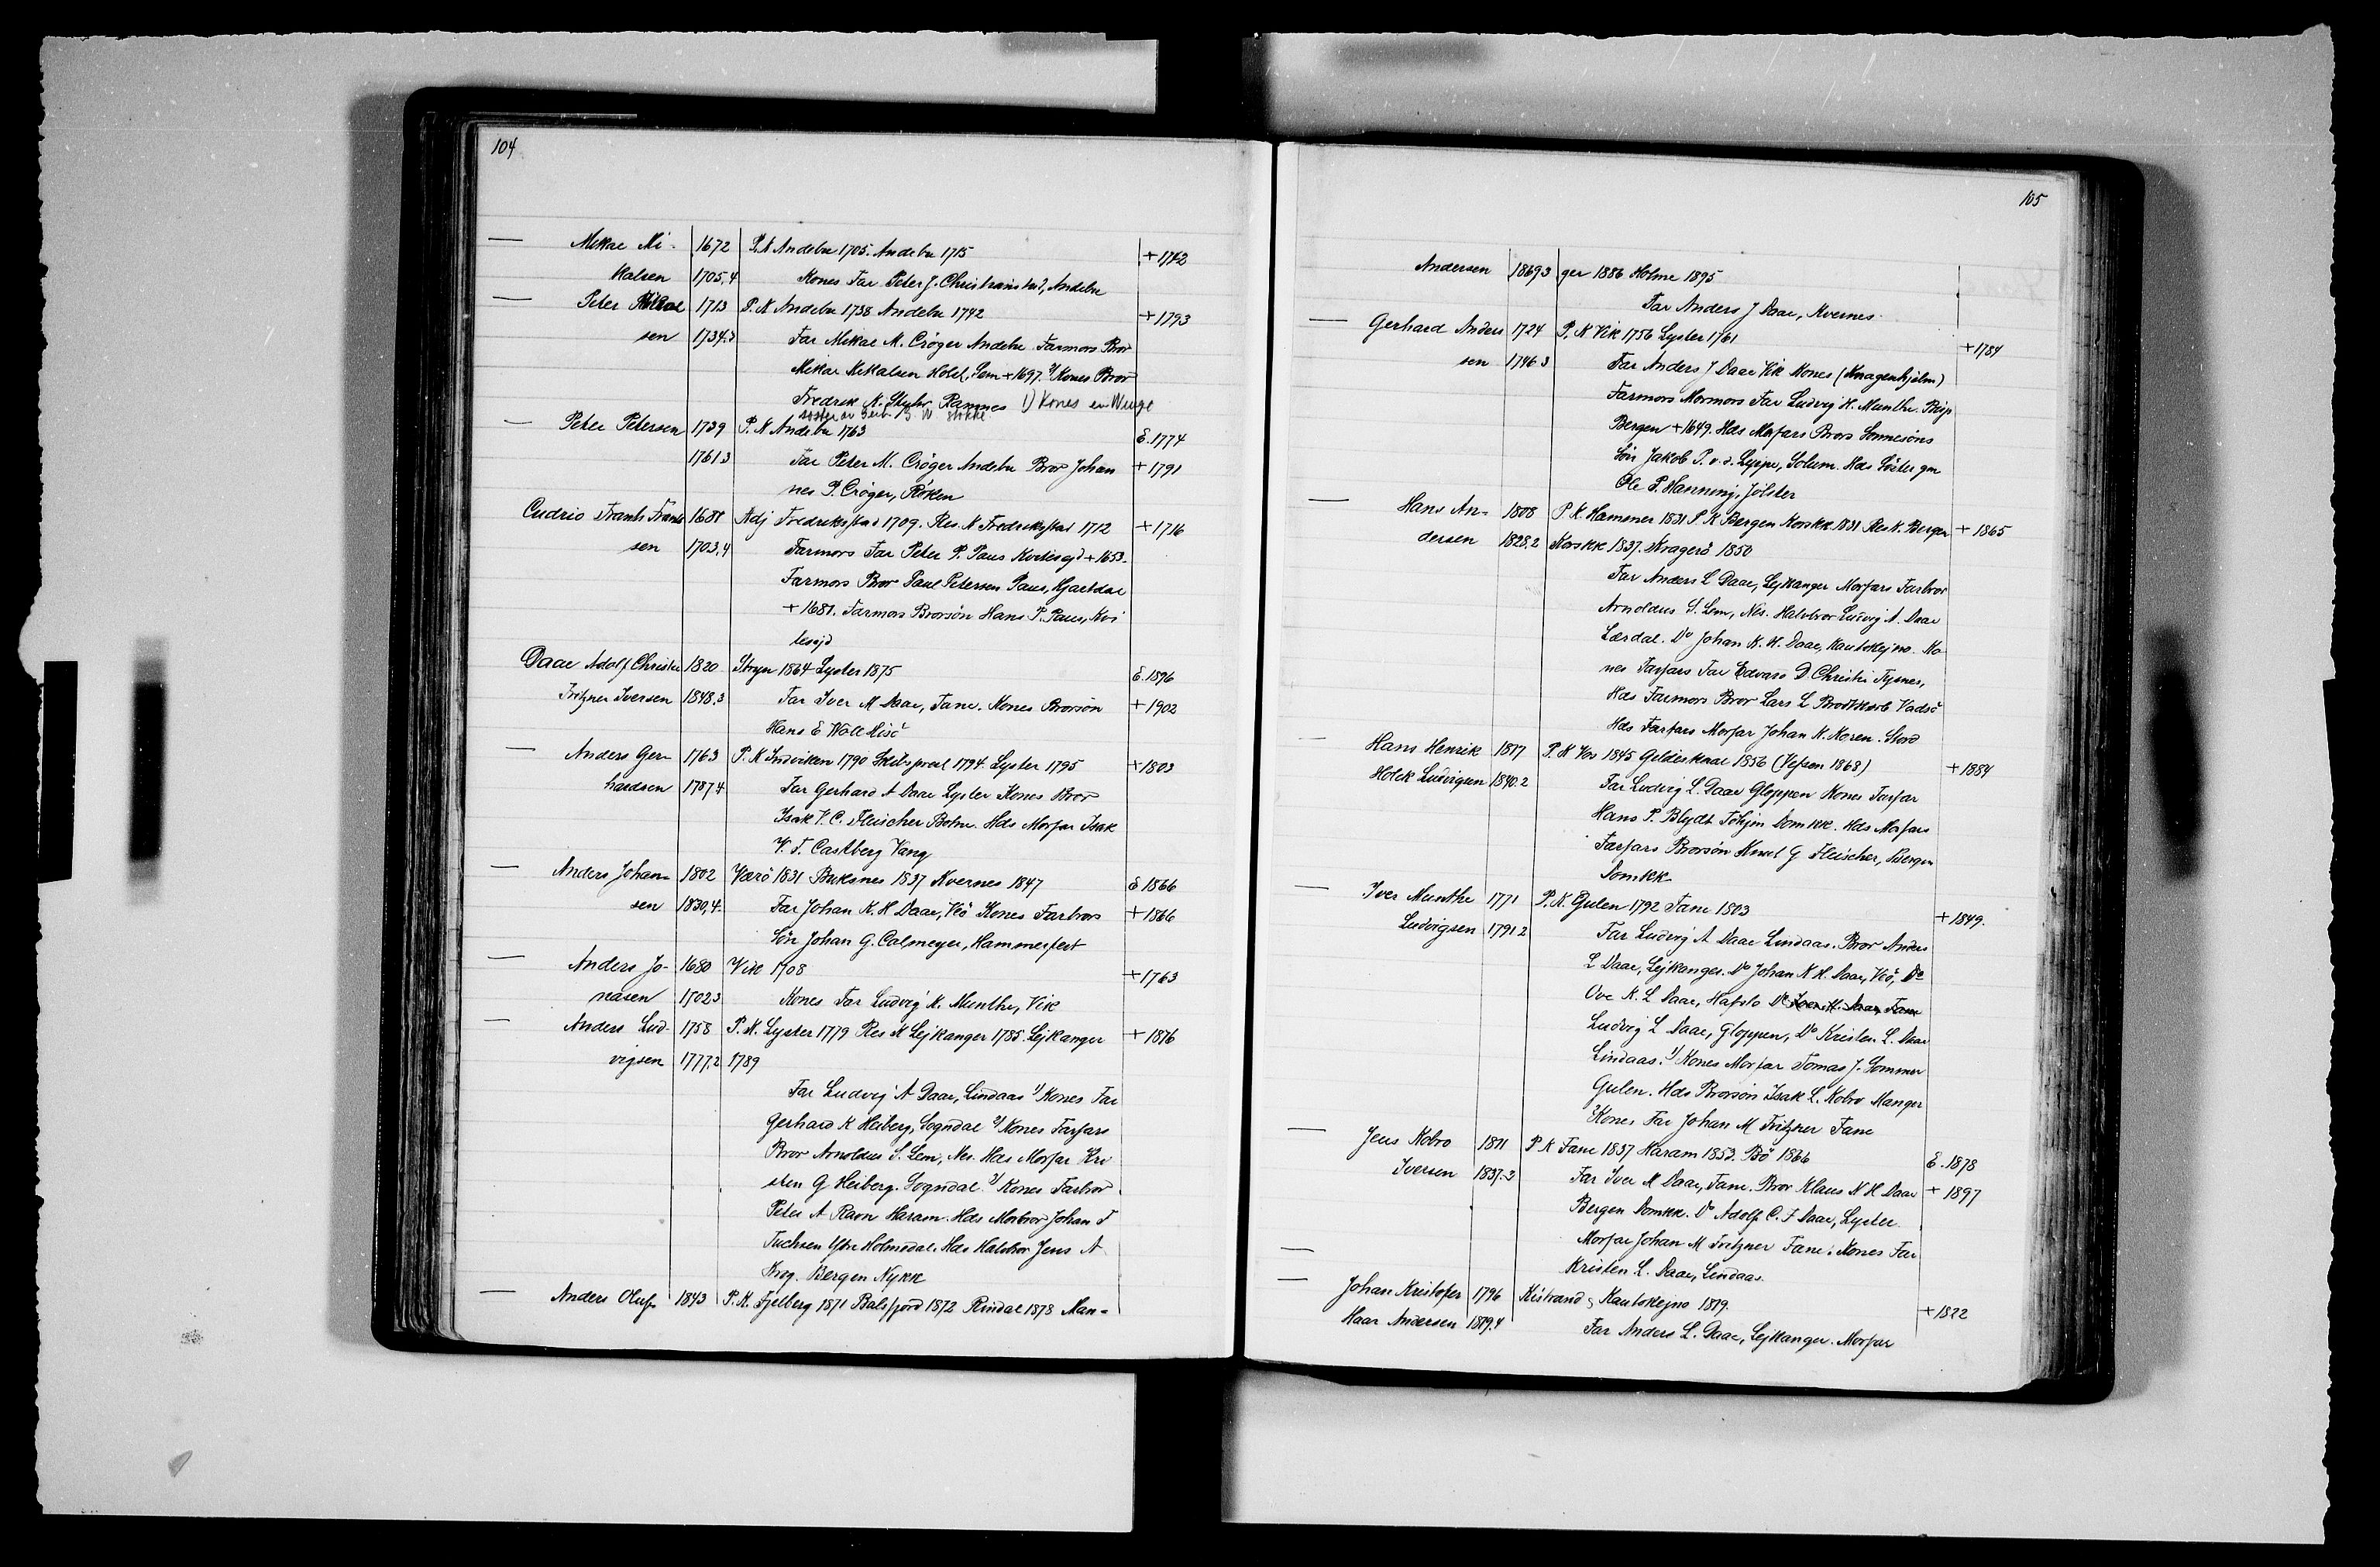 104
— Mikae Mi- 1672 P.K Andebu 1705. Andebu 1715 +1742
kalsen 1705.4 Kones Far Peter J. Christrainstad, Andebu
— Peter Mikkel 1713 P.K Andebu 1738 Andebu 1742 +1793
sen 1734.3 Far Mikae M. Crøger Andebu. Farmors Bror
Mikae Mikalsen Holst, Sem +1697. 2) Kones Bror
Fredrik N. Stylor Ramnes 1) Kones en Wiige
søster av Geib. G. W Stokke
— Peter Petersen 1739 P.K Andebu 1763 E.1774
1761.3 Far Peter M. Crøger Andebu Bror Johan +1791
nes P. Crøger, Röken
Cudrio Frants Frants 1681 Adj Fredriksstad 1709. Res. K Fredriksstad 1712 +1716
sen 1703.4 Farmors Far Peter P. Paus Kviteseid +1653.
Farmors Bror Paul Petersen Paus, Hjartdal
+1681. Farmors Brorsøn Hans P. Paus, Kvi
tesejd
Daae Adolf Christie 1820 Stryn 1864 Lyster 1875 E.1896
Fritzner Iversen 1848.3 Far Iver M Daae, Fane. Kones Brorsön +1902
Hans E Woll Risö
— Anders Ger- 1763 P.K Indviken 1790 Skibsprest 1794 Lyster 1795 +1803
hardsen 1787.4 Far Gerhard A Daae Lyster Kones Bror
Isak V. C. Fleischer Botne. Hds Morfar Isak
V. F. Castberg Vang
— Anders Johan- 1802 Værö 1831 Buksnes 1837 Kvernes 1847 E 1866
sen 1830,4. Far Johan K. H Daae, Veö Kones Farbrors +1866
Sön Johan G. Calmeyer, Hammerfest
— Anders Jo- 1680 Vik 1708 +1763
nasen 1702.3 Kones Far Ludvig K. Munthe, Vik
— Anders Lud- 1758 P.K. Lyster 1779 Res K Lejkanger 1785. Lejkanger +1816
vigsen 1777.2 1789
Far Ludvig A Daae, Lindaas 1) Kones Far
Gerhard K Heiberg, Sogndal 2) Kones Farfars
Bror Arnoldus S. Lem, Nes. Hds Morfar Kri
sten G Heiberg. Sogndal. 3) Kones Farbror
Peter A Ravn Haram. Hds Morbror Johan F
Tuchsen Ytre Holmedal. Hds Halvbror Jens A
Krog. Bergen Nykk
— Anders Oluf 1843 P.K. Fjelberg 1871 Balsfjord 1872 Rindal 1878 Man-
105
Andersen 1869.3 ger 1886 Holme 1895
Far Anders J Daae, Kvernes.
— Gerhard Anders 1724 P.K Vik 1756 Lyster 1761 +1784
sen 1746.3 Far Anders J Daae Vik Kones (Knagenhjelm)
Farmors Mormors Far Ludvig H. Munthe. Bisp
Bergen +1649. Hds Morfars Brors Sønnesøns
Sön Jakob P. v. d. Lippe, Solum. Hds Söster gm
Ole P. Hanning, Jölster
— Hans An- 1808 P.K. Hammer 1831 P.K Bergen Korskk. 1831 Res K. Bergen +1865
dersen 1828.2 Korskk 1837. Kragerö 1850
Far Anders L Daae, Lejkanger Morfars Farbror
Arnoldus S. Lem, Nes. Halvbror Ludvig A. Daae
Lærdal. Do Johan K. H. Daae, Kautokejno. Ko
nes Farfars Far Edvard D. Christie Tysnes,
Hds Farmors Bror Lars L Brodtkorb Vadsö
Hds Farfars Morfar Johan K. Koren. Stord
— Hans Henrik 1817 P.K Vos 1845 Gildeskaal 1856 (Vefsen 1868) +1884
Holck Ludvigsen 1840.2 Far Ludvig L. Daae Gloppen Kones Farfar
Hans P. Blydt Domkk. Hds Morfars
Farfars Brorsön Knud G Fleischer, Bergen
Domkk
— Iver Munthe 1771 P.K. Gulen 1792 Fane 1803 +1849.
Ludvigsen 1791.2 Far Ludvig A Daae Lindaas. Bror Anders
L Daae, Lejkanger. Do Johan K H. Daae, Veö, Do
Ove K. L Daae, Hafslo Do Iver M. Daae, Fane
Ludvig L Daae, Gloppen, Do Kristen L. Daae
Lindaas. 1) Kones Morfar Tomas J. Sommer
Gulen. Hds Brorsön Isak L. Kobro Manger
2) Kones Far Johan M Fritzner Fane
— Jens Kobro 1811 P K Fane 1837 Haram 1853. Bö 1866 E.1878
Iversen 1837.3 Far Iver M Daae, Fane. Bror Klaus N H Daae +1897
Bergen Domkk. Do Adolf C. F Daae, Lyster.
Morfar Johan M Fritzner Fane. Kones Far
— Kristen L. Daae, Lindaas.
— Johan Kristofer 1796 Kistrand & Kautokejno 1819. +1822
Haar Andersen 1819.4 Far Anders L. Daae, Lejkanger. Morfar